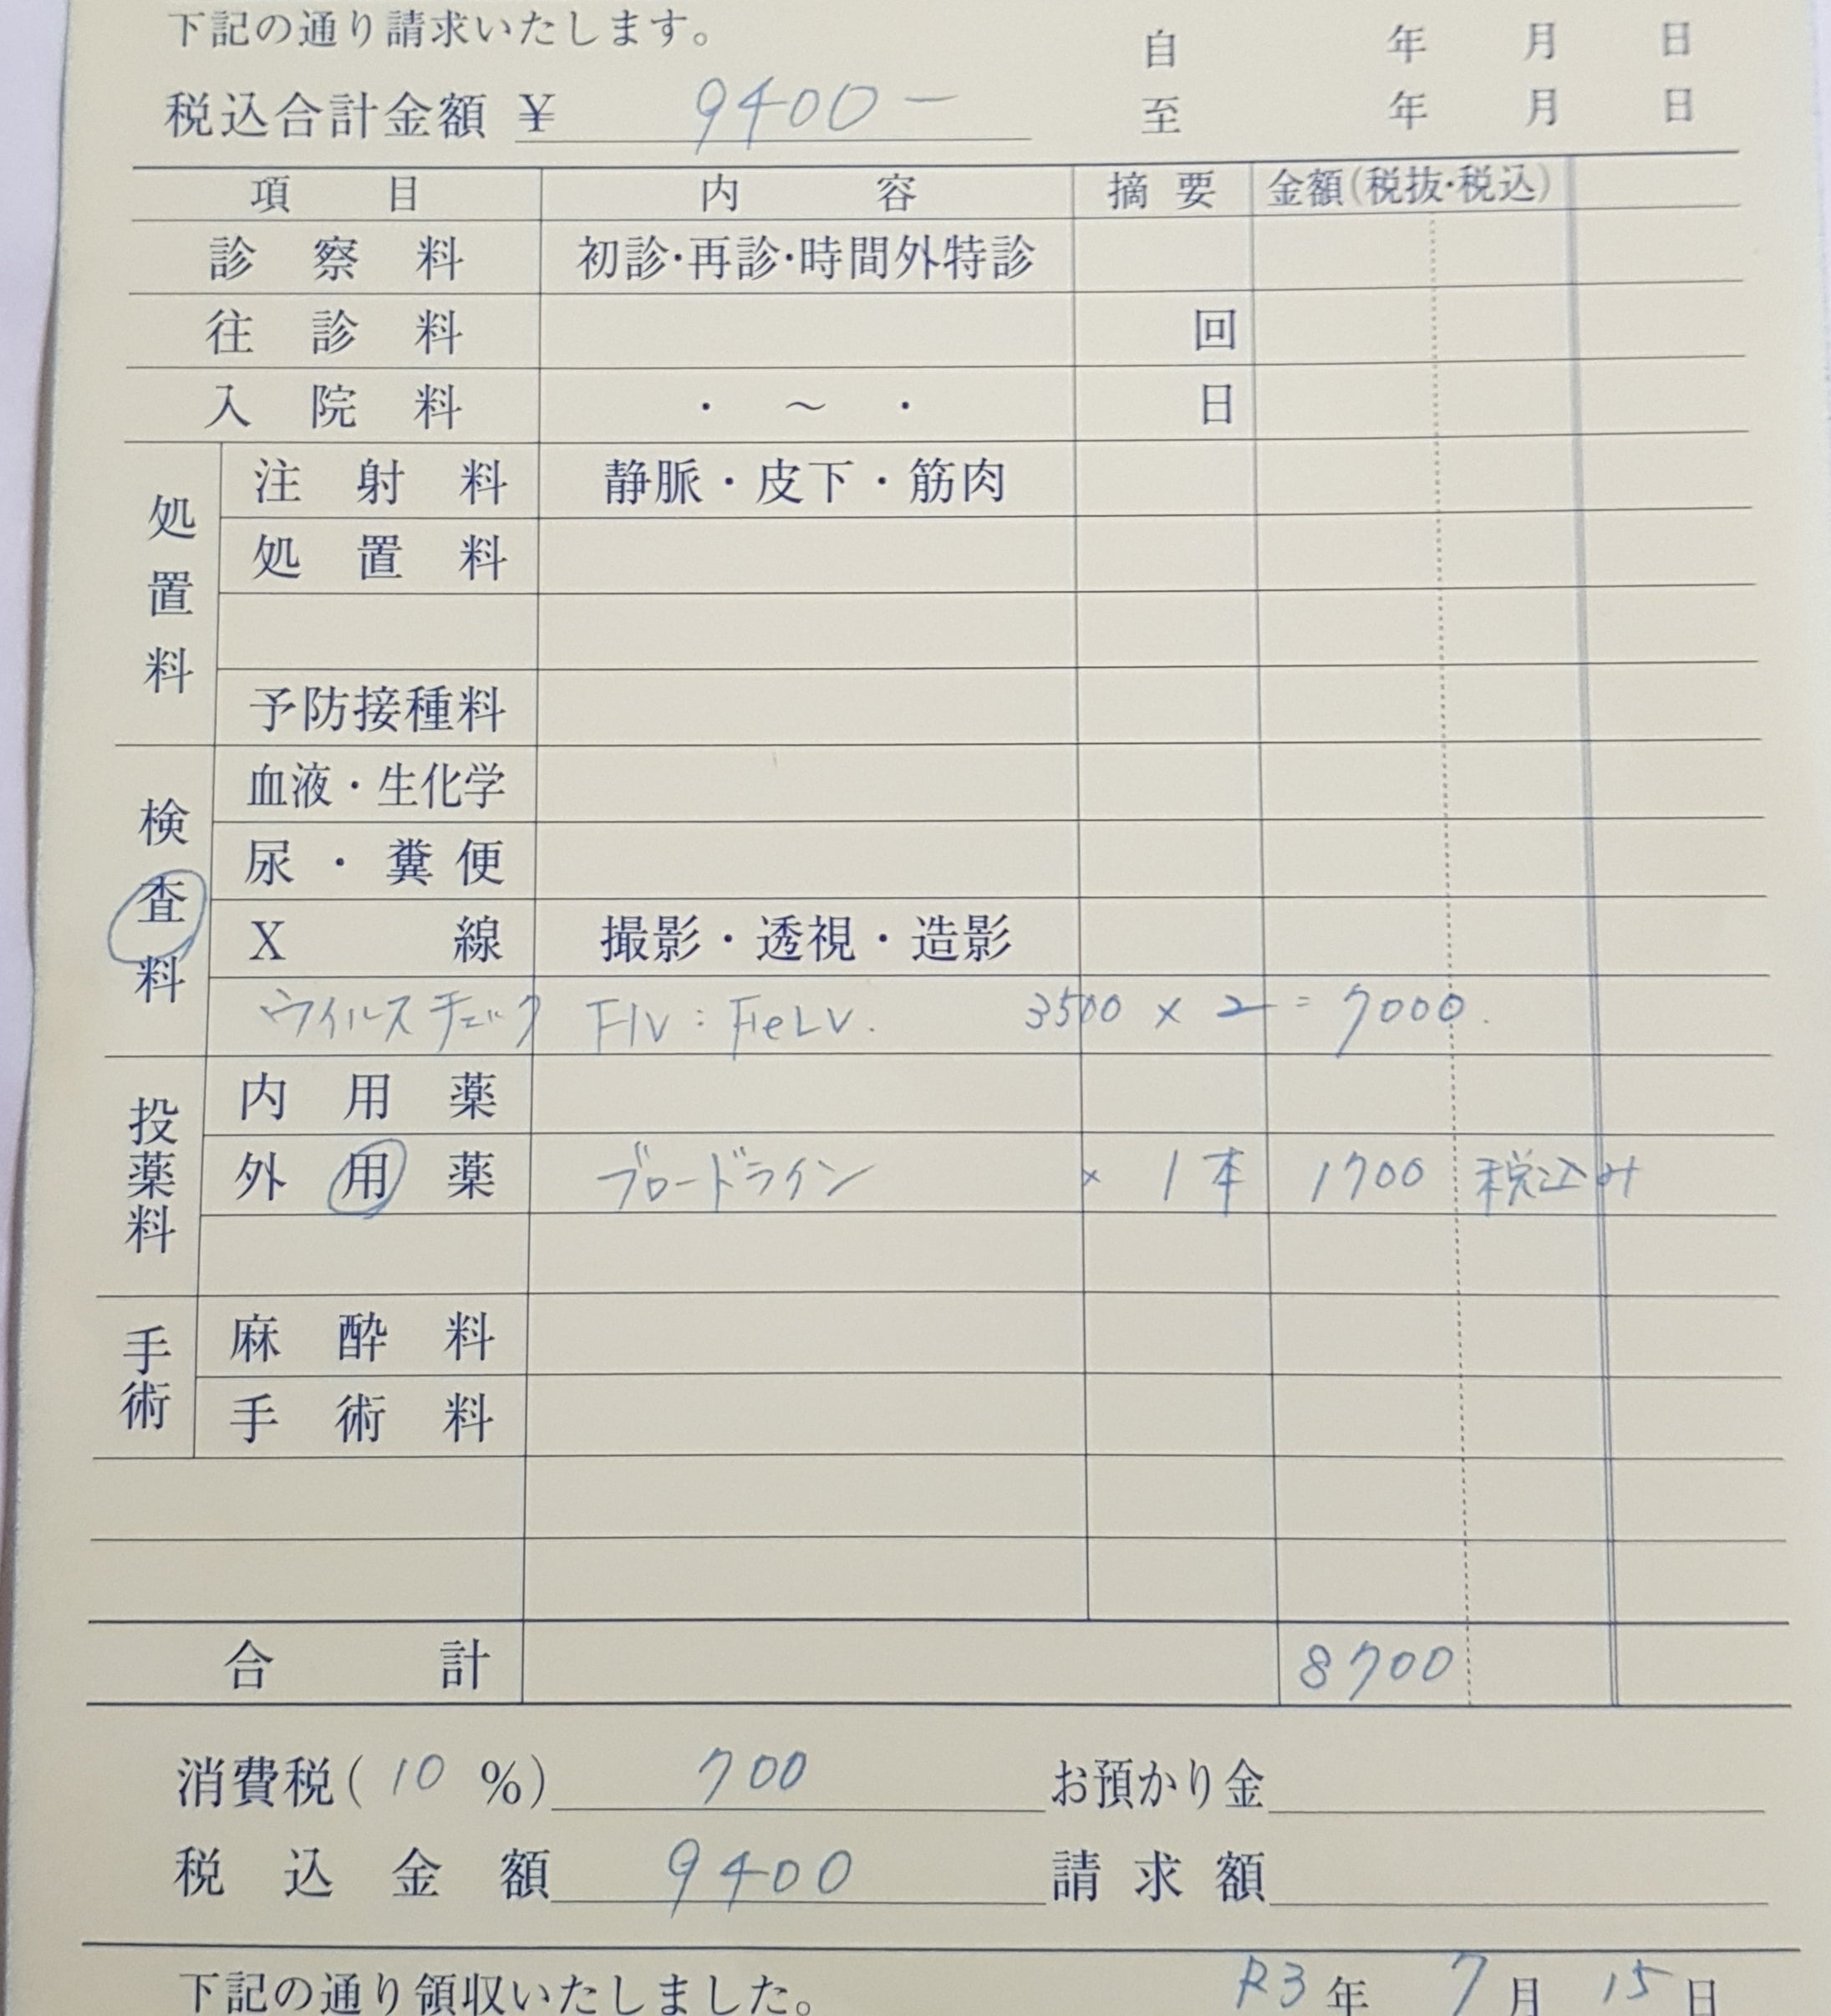 下記の通り請求いたします。
自 年 月 日
税込合計金額 ¥ 9400-
至 年 月 日
項 目 内 容 摘 要 金額(税抜・税込)
診 察 料 初診・再診・時間外特診
往 診 料 回
入 院 料 ・ ~ ・ 日
処置料
注 射 料 静脈・皮下・筋肉
処 置 料
予防接種料
検査料
血液・生化学
尿・糞便
X 線 撮影・透視・造影
ウイルスチェック FIV:FeLV. 3500 × 2 = 7000.
投薬料
内 用 薬
外 用 薬 ブロードライン × 1本 1700 税込み
手術
麻 酔 料
手 術 料
合 計 8700
消費税( 10 %) 700 お預かり金
税 込 金 額 9400 請 求 額
下記の通り領収いたしました。 R3年 7月 15日